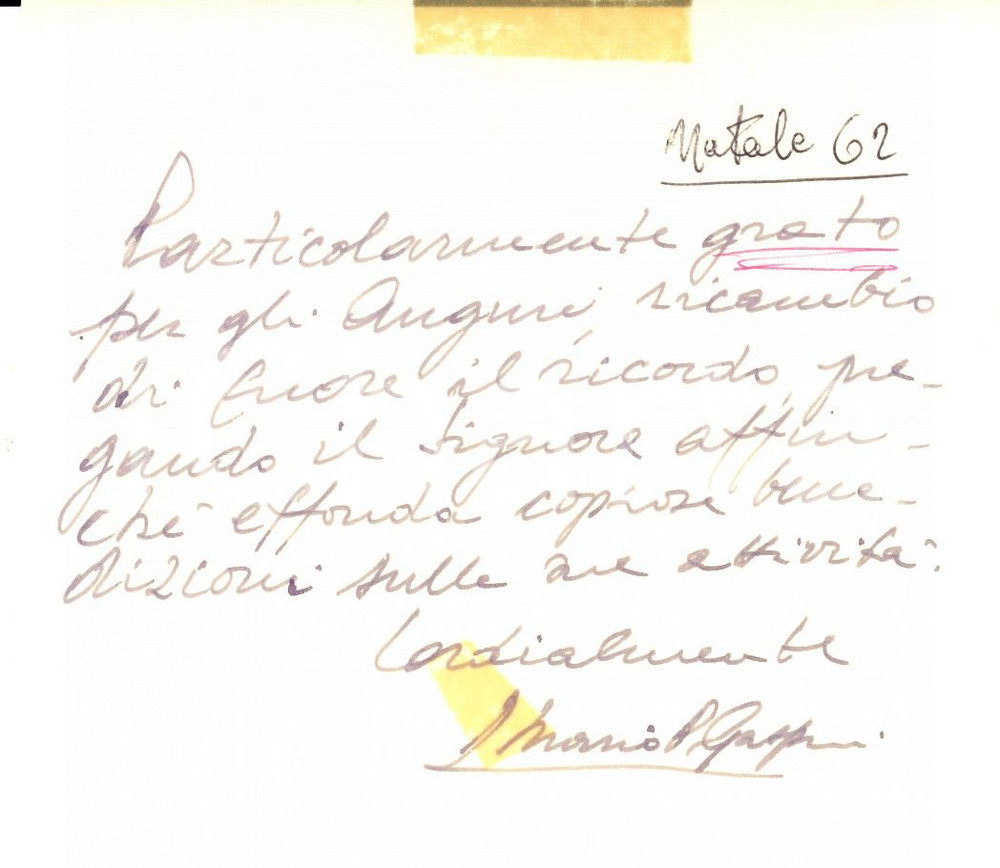 Natale 62
Particolarmente grato
per gli Auguri, ricambio
di cuore il ricordo, pre-
gando il Signore affin-
ché effonda copiose bene-
dizioni sulle sue attività.
Cordialmente
Mario P. Gasp